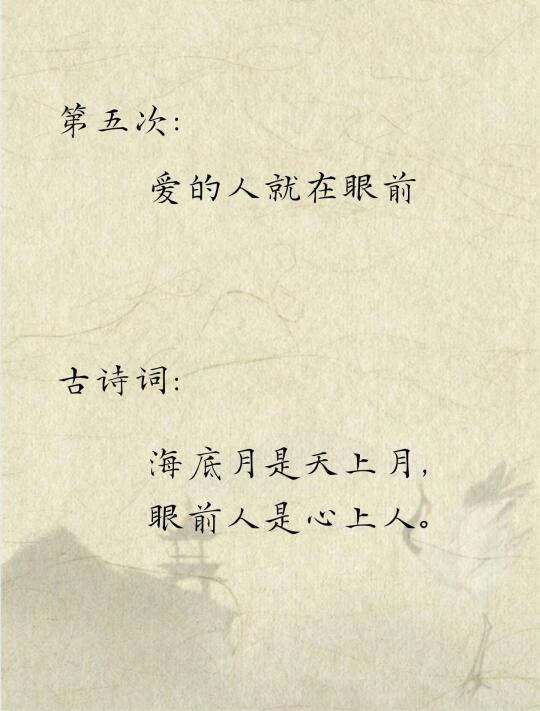 第五次:
爱的人就在眼前
古诗词:
海底月是天上月,
眼前人是心上人。